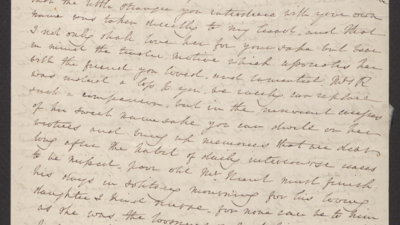 the little stranger you introduce with your own
name was taken directly to my heart. and that
I not only shall love her for your sake but bear
in mind the tender motive which associates her
with the friend you loved, and lamented. Mrs R
was indeed a loss to you. we rarely can replace
such a companion, but in the innocent
of his sweet namesake you can dwell on her
and bring up memories that are dear
long after the habit of daily intercourse ceases
to be perfect. poor old Mr must finish
his days in solitary mourning for his loving
daughter I must suppose, for none can be to him
as she was the